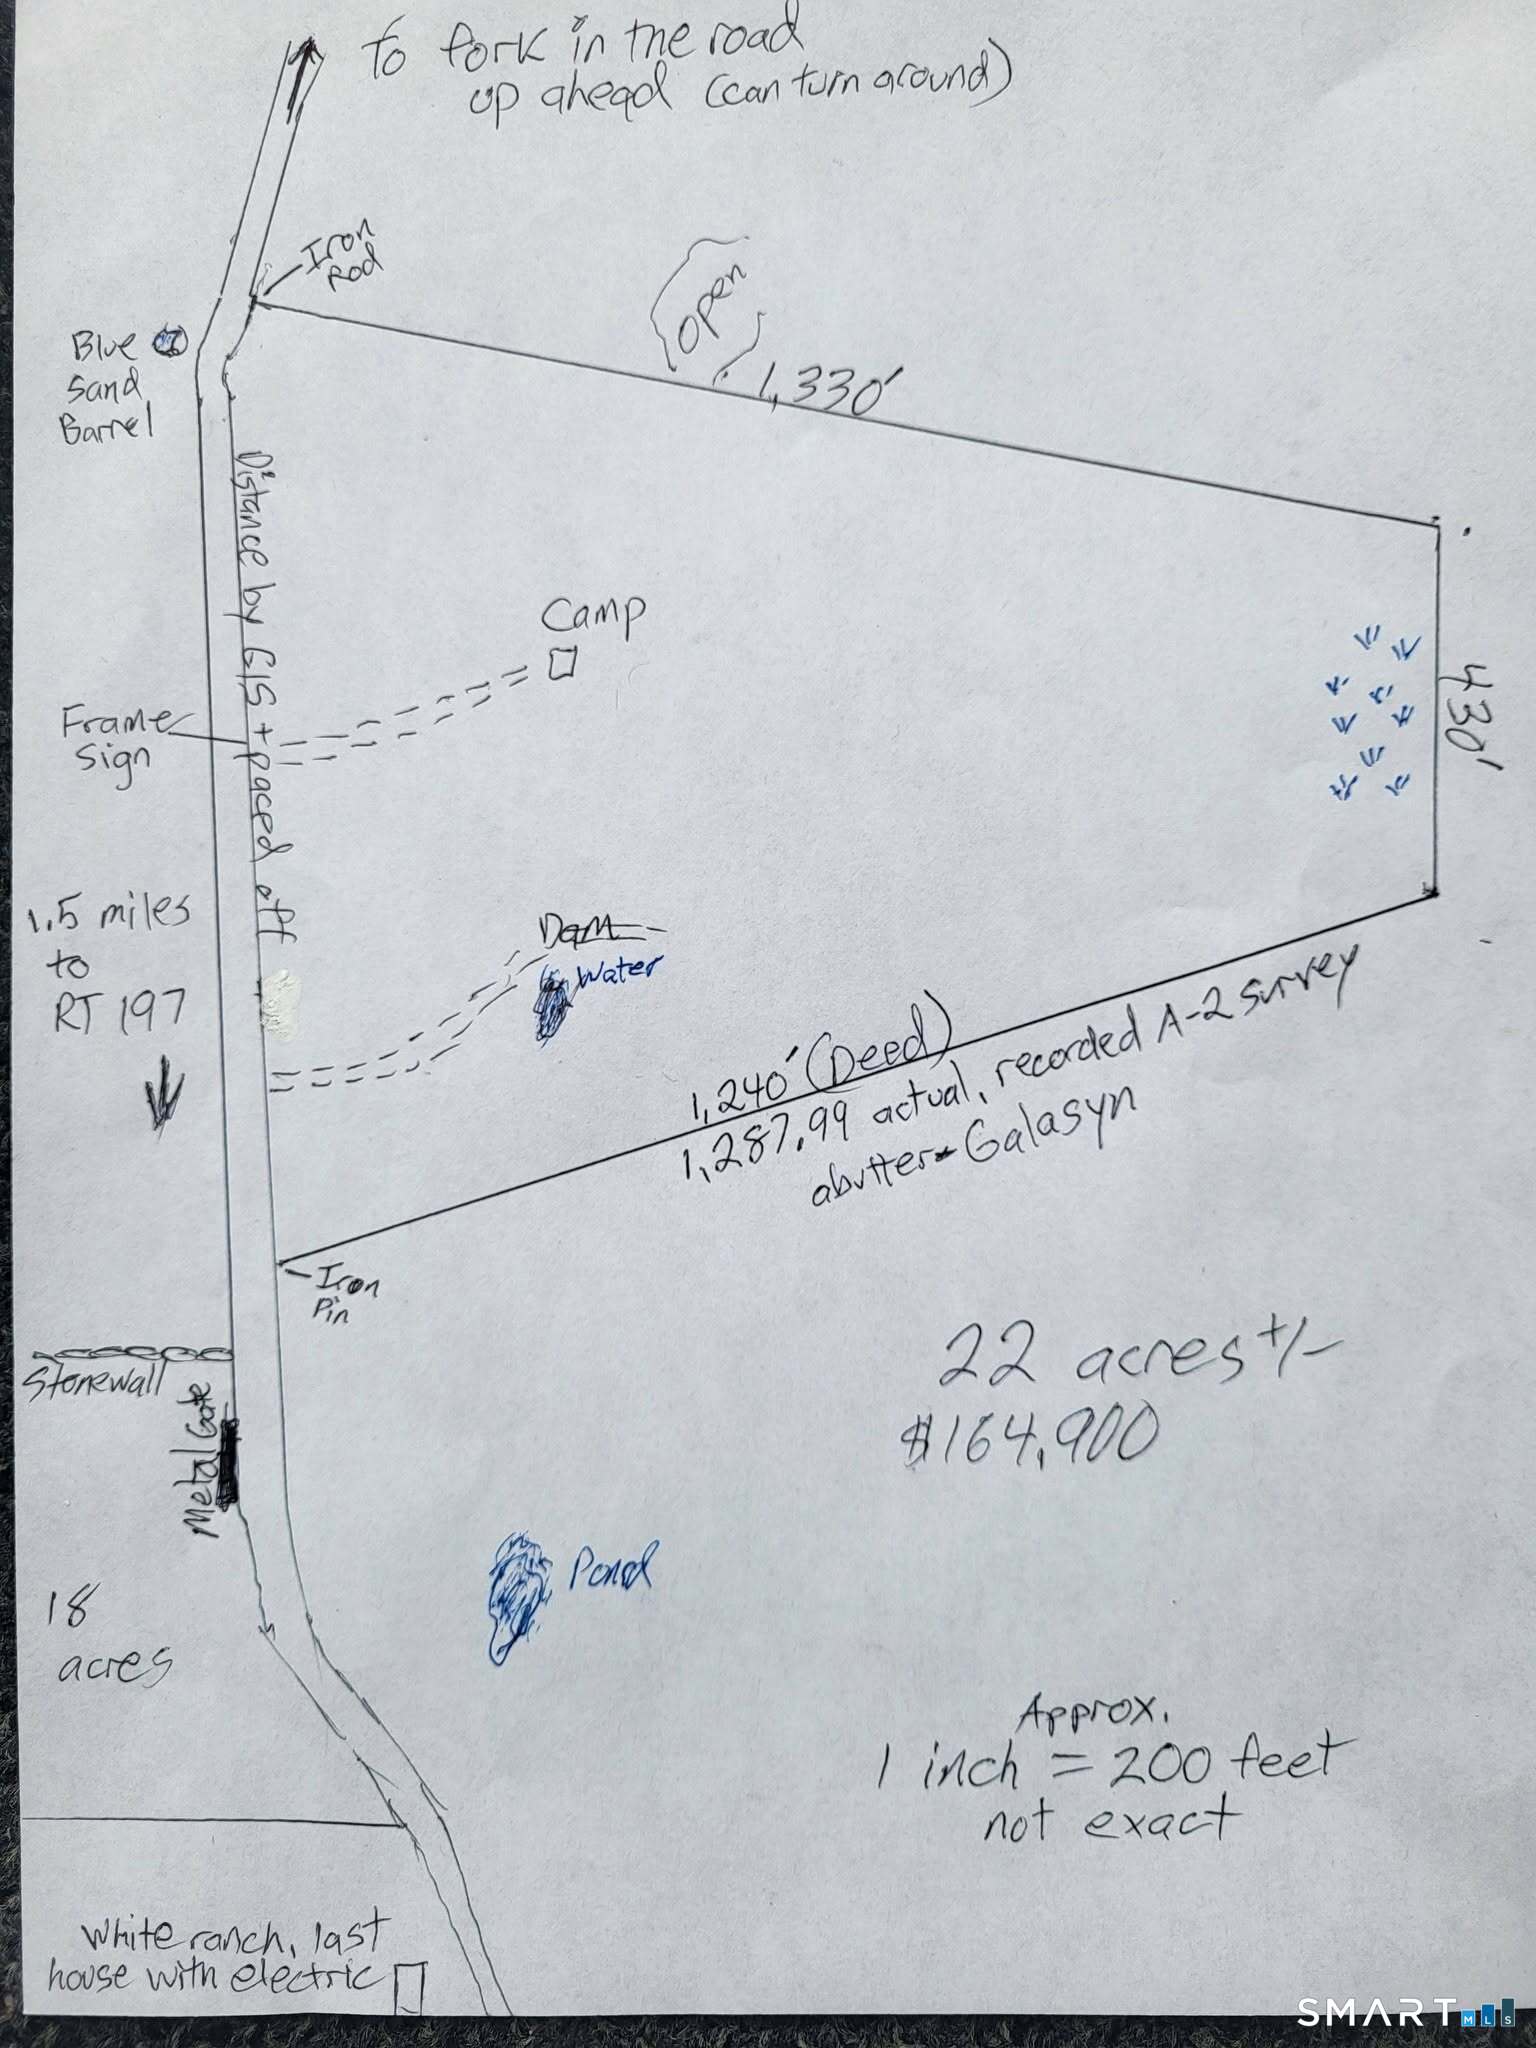 To fork in the road
up ahead (can turn around)
Iron
Rod
Open
1,330'
Blue
Sand
Barrel
Distance by GIS + paced off
Camp
Frame
Sign
430'
1.5 miles
to
RT 197
Dam
Water
1,240' (Deed)
1,287.99 actual, recorded A-2 survey
abutter - Galasyn
Iron
Pin
22 acres +/-
$164,900
Stonewall
Metal Gate
Pond
18
acres
Approx.
1 inch = 200 feet
not exact
White ranch, last
house with electric
SMART MLS